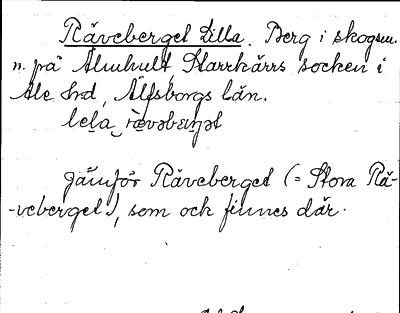 Räveberget Lilla. Berg i skogsm.
n. på Älmhult, Starrkärrs socken i
Ale hd, Älfsborgs län.
lela rævəbærjət
jämför Räveberget (= Stora Rä-
-veberget), som och finnes där.